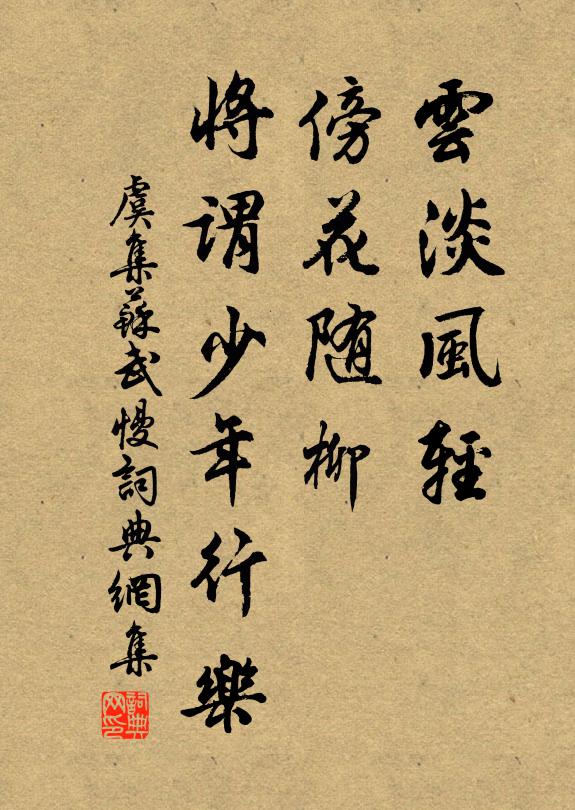 雲淡風輕
傍花随柳
將謂少年行樂
虞集蘇武慢詞典網集
詞典网印